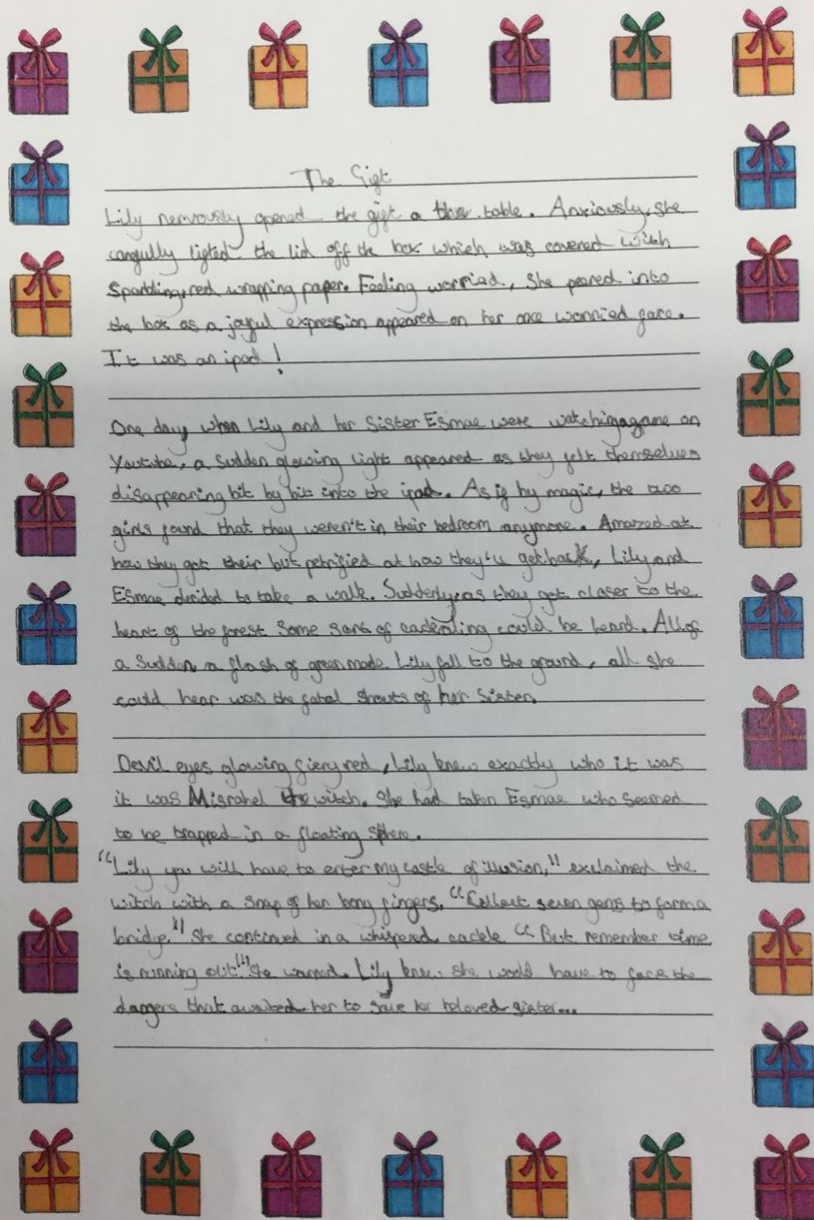 The Gift
Lily nervously opened the gift a the table. Anxiously, she
carefully lifted the lid off the box which was covered with
Sparkling, red wrapping paper. Feeling worried, She peered into
the box as a joyful expression appeared on her once worried face.
It was an ipad!
One day, when Lily and her Sister Esmae were watching a game on
Youtube, a Sudden glowing light appeared as they felt themselves
disappearing bit by bit into the ipad. As if by magic, the two
girls found that they weren't in their bedroom anymore. Amazed at
how they got their but petrified at how they'll get back, Lily and
Esmae decided to take a walk. Suddenly, as they got closer to the
heart of the forest Some sort of could be heard. All of
a Sudden a flash of green made Lily fall to the ground, all she
could hear was the fatal shouts of her Sister.
Devil eyes glowing fiery red, Lily knew exactly who it was
it was Misrabel the witch. She had taken Esmae who seemed
to be trapped in a floating sphere.
"Lily you will have to enter my castle of illusion," exclaimed the
witch with a snap of her bony fingers. "Collect seven gems to form a
bridge." She continued in a whispered cackle "But remember time
is running out!" She warned. Lily knew she would have to face the
dangers that awaited her to save her beloved sister...